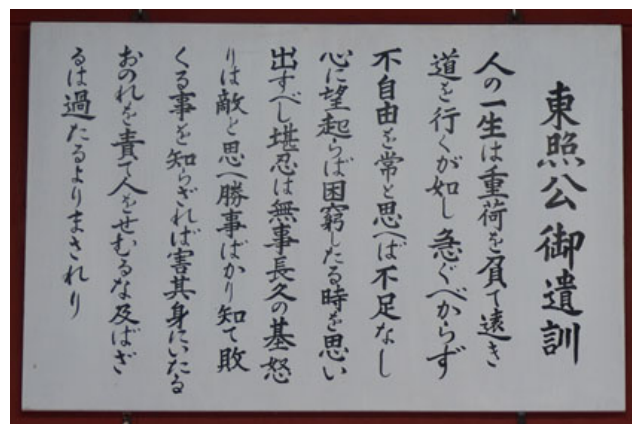 東照公御遺訓
人の一生は重荷を負て遠き
道を行くが如し急ぐべからず
不自由を常と思へば不足なし
心に望起らば困窮したる時を思い
出すべし堪忍は無事長久の基怒
りは敵と思へ勝事ばかり知て敗
くる事を知らざれば害其身にいたる
おのれを責て人をせむるな及ばざ
るは過たるよりまされり